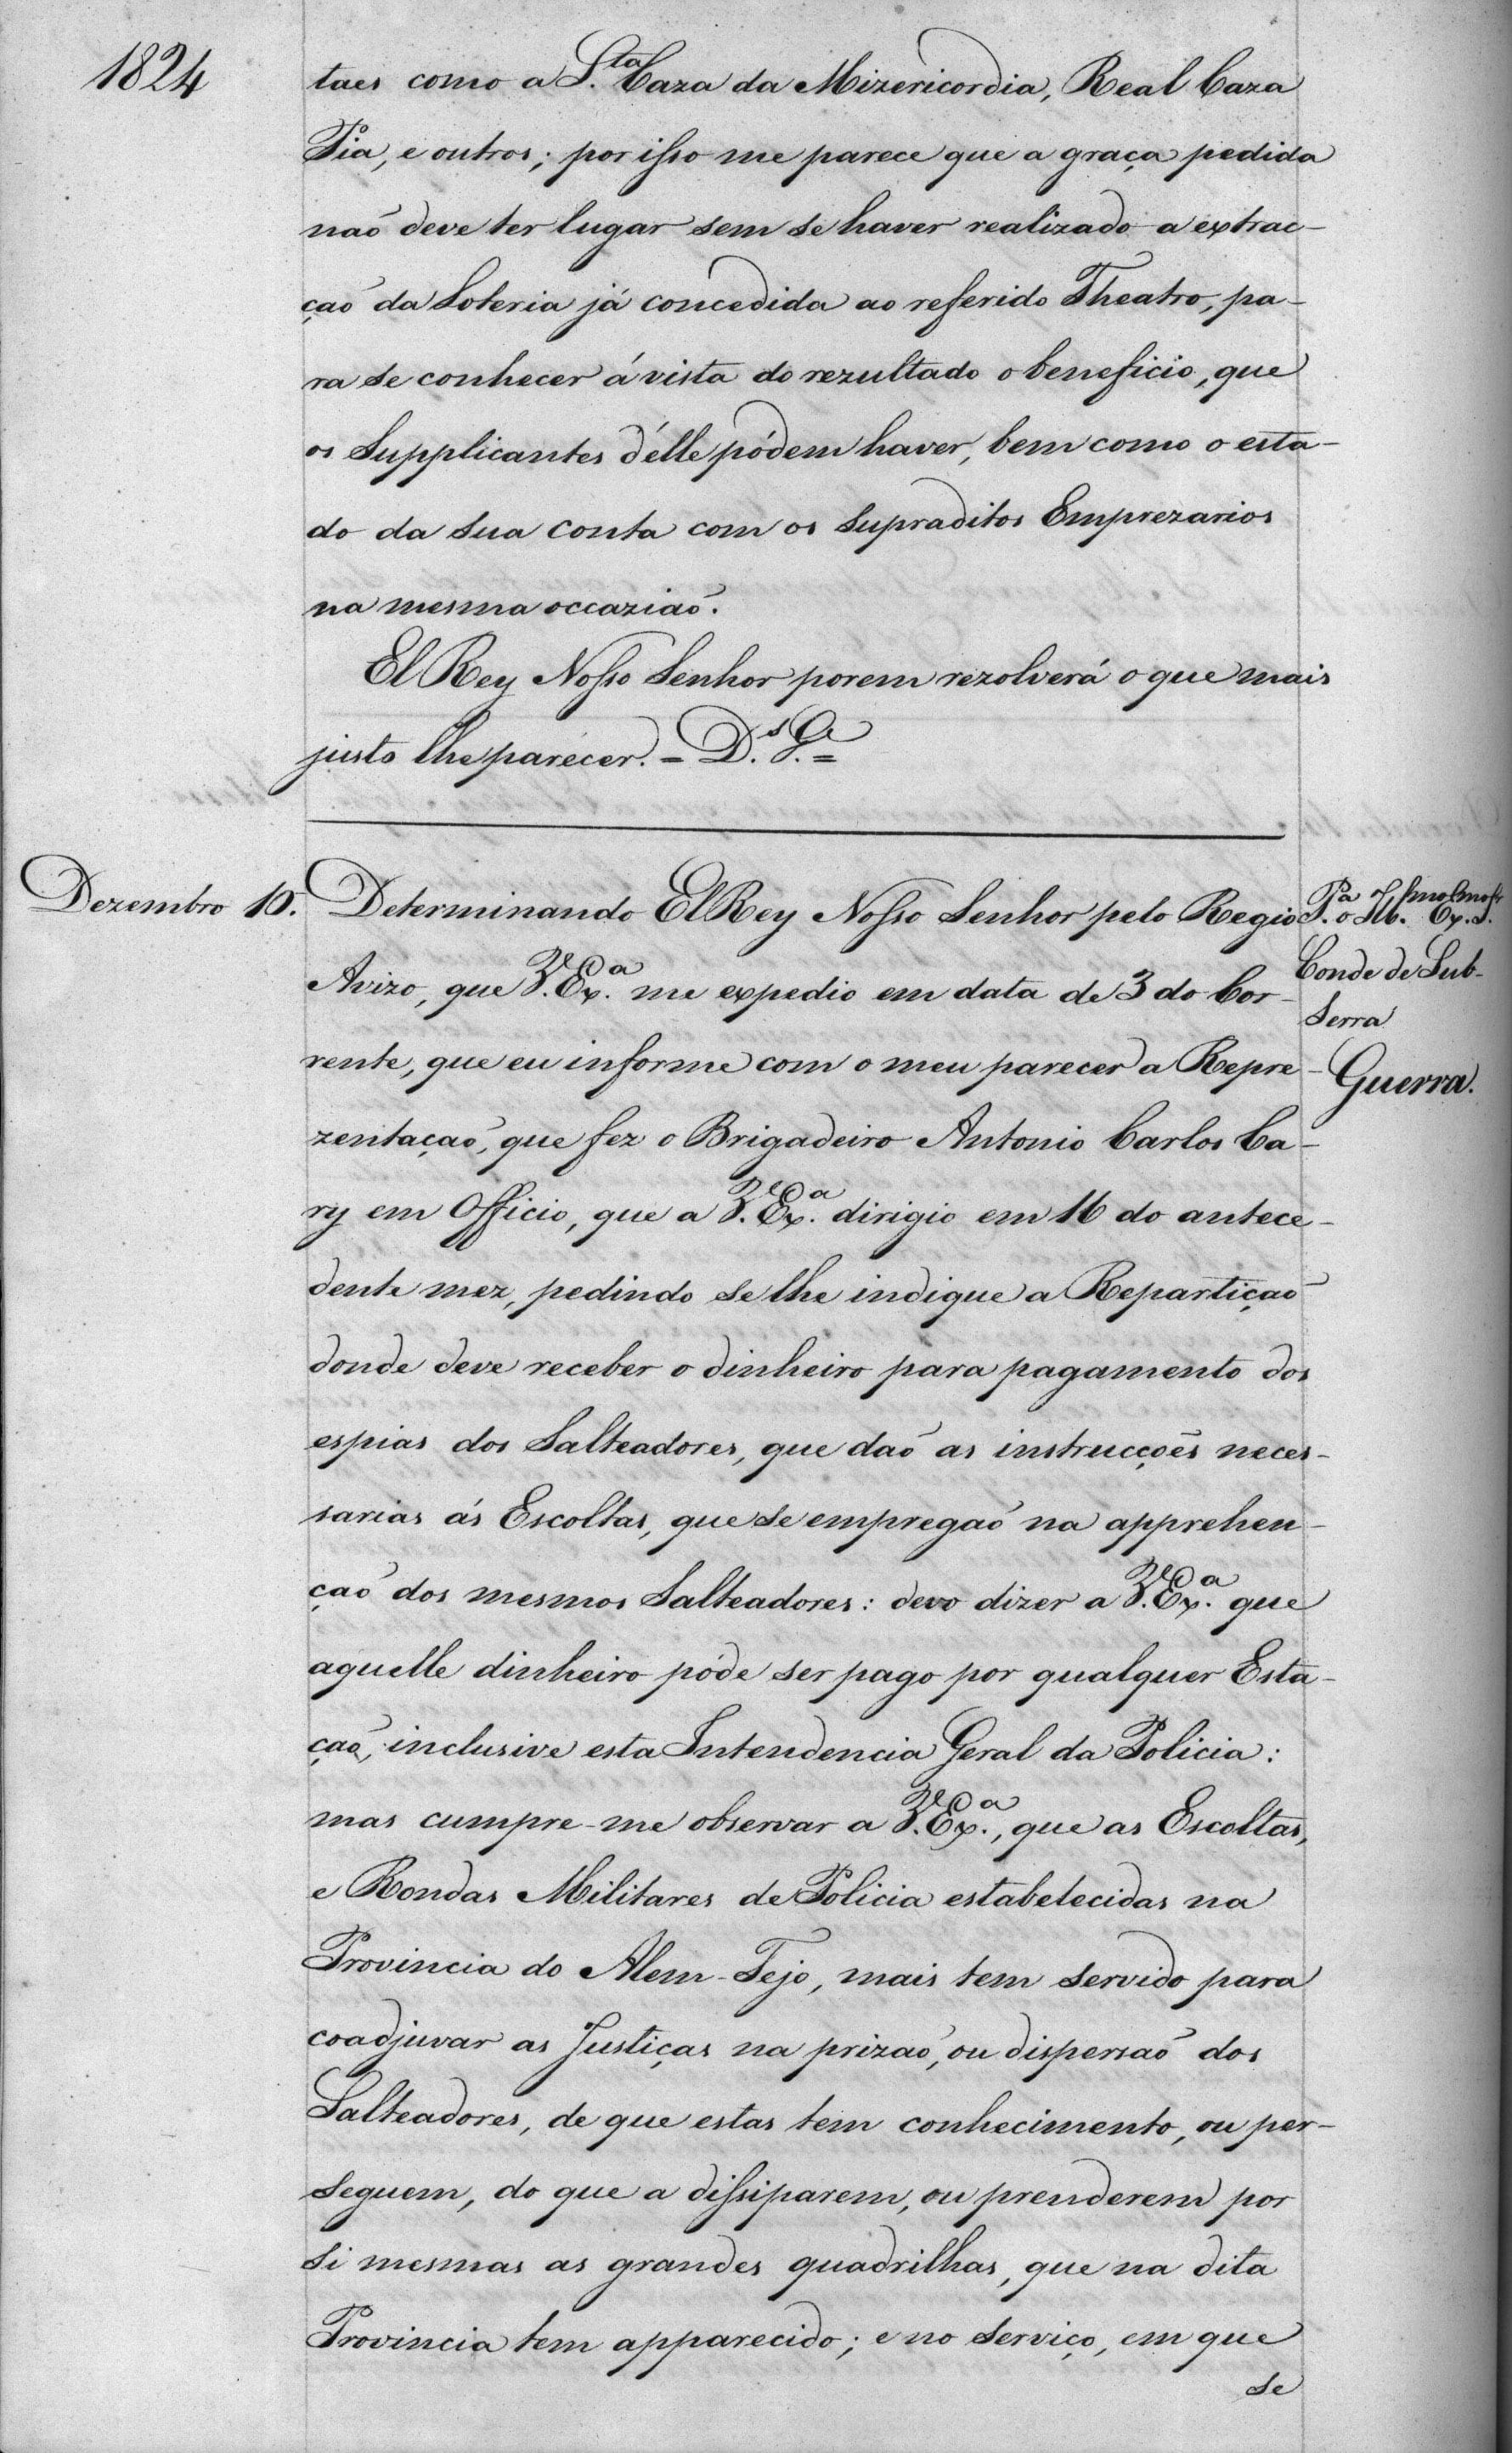 1824
taes como a S.ta Caza da Mizericordia, Real Caza
Pia, e outros; por isso me parece que a graça pedida
naõ deve ter lugar sem se haver realizado a extrac-
çaõ da Loteria já concedida ao referido Theatro, pa-
ra se conhecer á vista do rezultado o beneficio, que
os Supplicantes d'élle pódem haver, bem como o esta-
do da sua conta com os supraditos Emprezarios
na mesma occaziaõ.
El Rey Nosso Senhor porem rezolverá o que mais
justo lhe parecer. = D.s G.e =
Dezembro 10.
Determinando El Rey Nosso Senhor pelo Regio
Avizo, que V.Ex.a me expedio em data de 3 do Cor-
rente, que eu informe com o meu parecer a Repre-
zentaçaõ, que fez o Brigadeiro Antonio Carlos Ca-
ry em Officio, que a V.Ex.a dirigio em 16 do antece-
dente mez, pedindo se lhe indique a Repartiçaõ
donde deve receber o dinheiro para pagamento dos
espias dos Salteadores, que daõ as instrucções neces-
sarias ás Escoltas, que se empregaõ na apprehen-
çaõ dos mesmos Salteadores: devo dizer a V.Ex.a que
aquelle dinheiro póde ser pago por qualquer Esta-
çaõ, inclusive esta Intendencia Geral da Policia:
mas cumpre-me observar a V.Ex.a, que as Escoltas,
e Rondas Militares de Policia estabelecidas na
Provincia do Alem-Tejo, mais tem servido para
coadjuvar as Justiças na prizaõ, ou dispersaõ dos
Salteadores, de que estas tem conhecimento, ou per-
seguem, do que a dissiparem, ou prenderem por
si mesmas as grandes quadrilhas, que na dita
Provincia tem apparecido; e no serviço, em que
se
P.a o Ill.mo Ex.mo S.r
Conde de Sub-
Serra
Guerra.